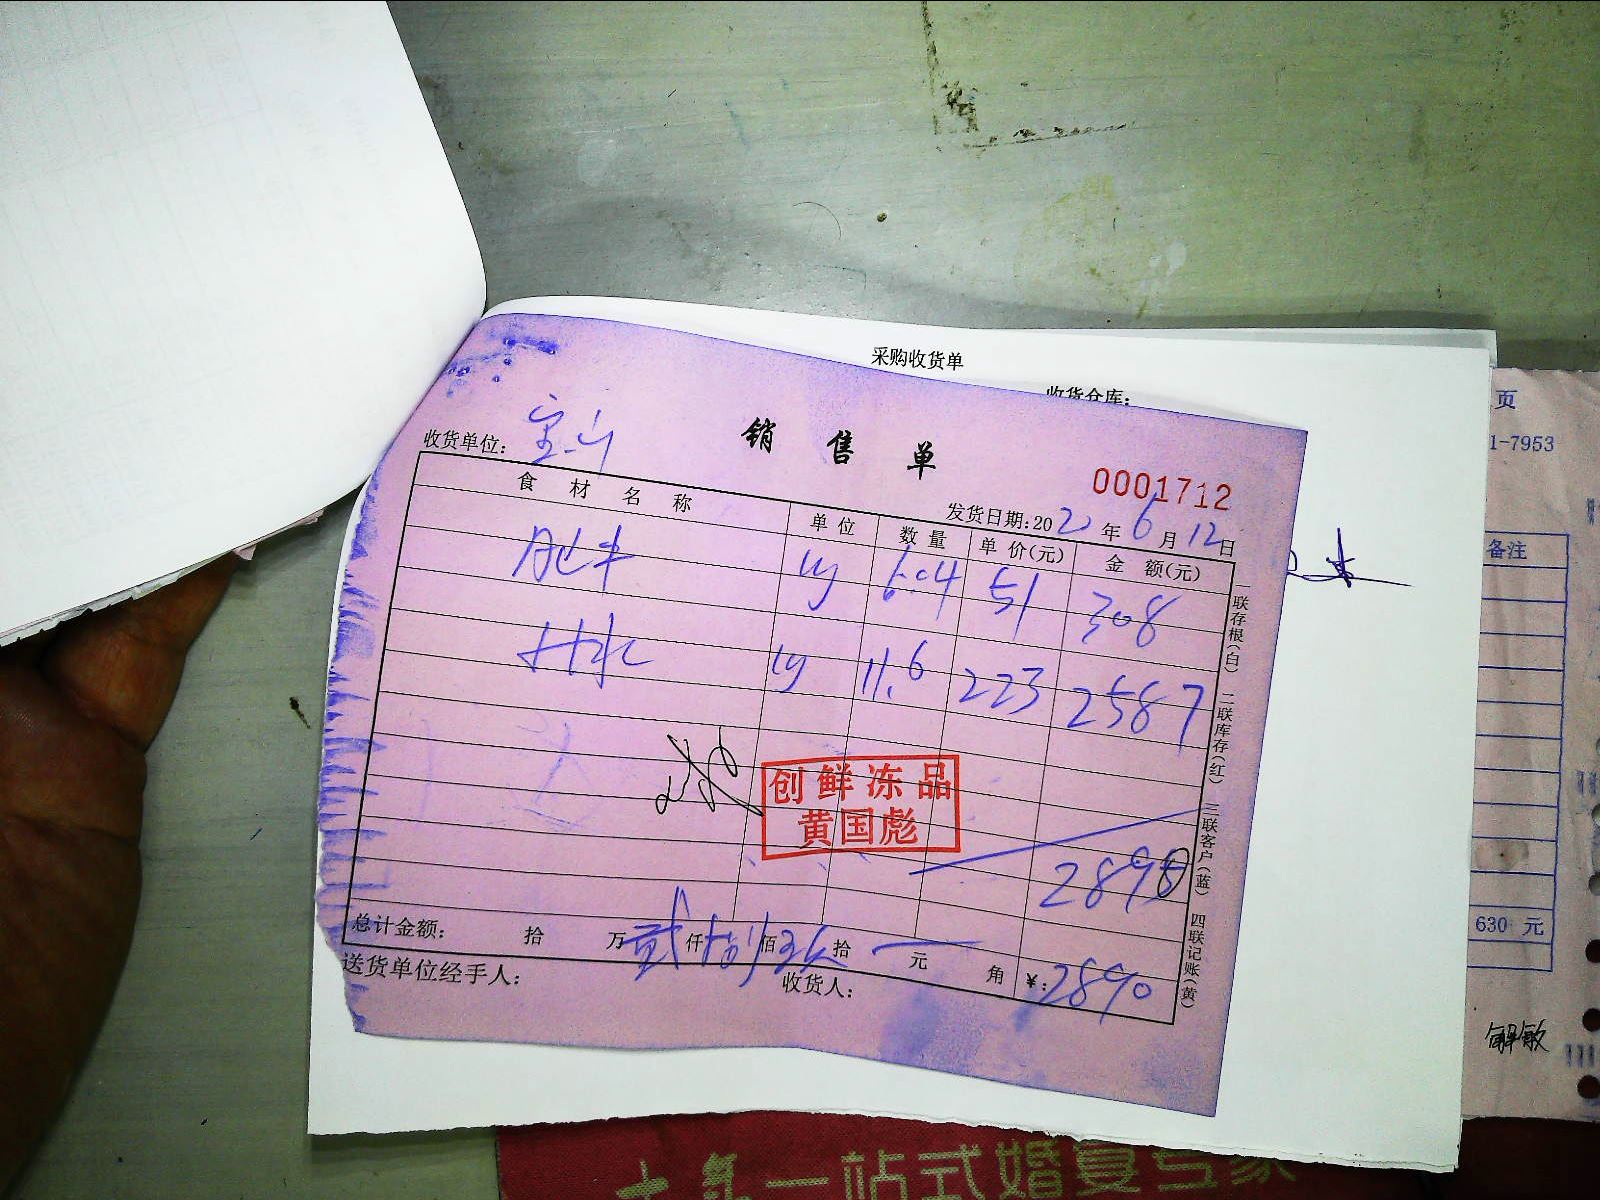 采购收货单
收货仓库:
页
1-7953
销售单
收货单位: 宝山
0001712
发货日期:2022年6月12日
备注
食材名称 单位 数量 单价(元) 金额(元)
肥牛 kg 6.04 51 308
kg 11.6 223 2587
创鲜冻品
黄国彪
2890
总计金额: 拾 万 贰 仟 捌 佰 玖 拾 元 角 ¥:2890
送货单位经手人: 收货人:
一联存根(白) 二联库存(红) 三联客户(蓝) 四联记账(黄)
630 元
解敏
一站式婚宴专家